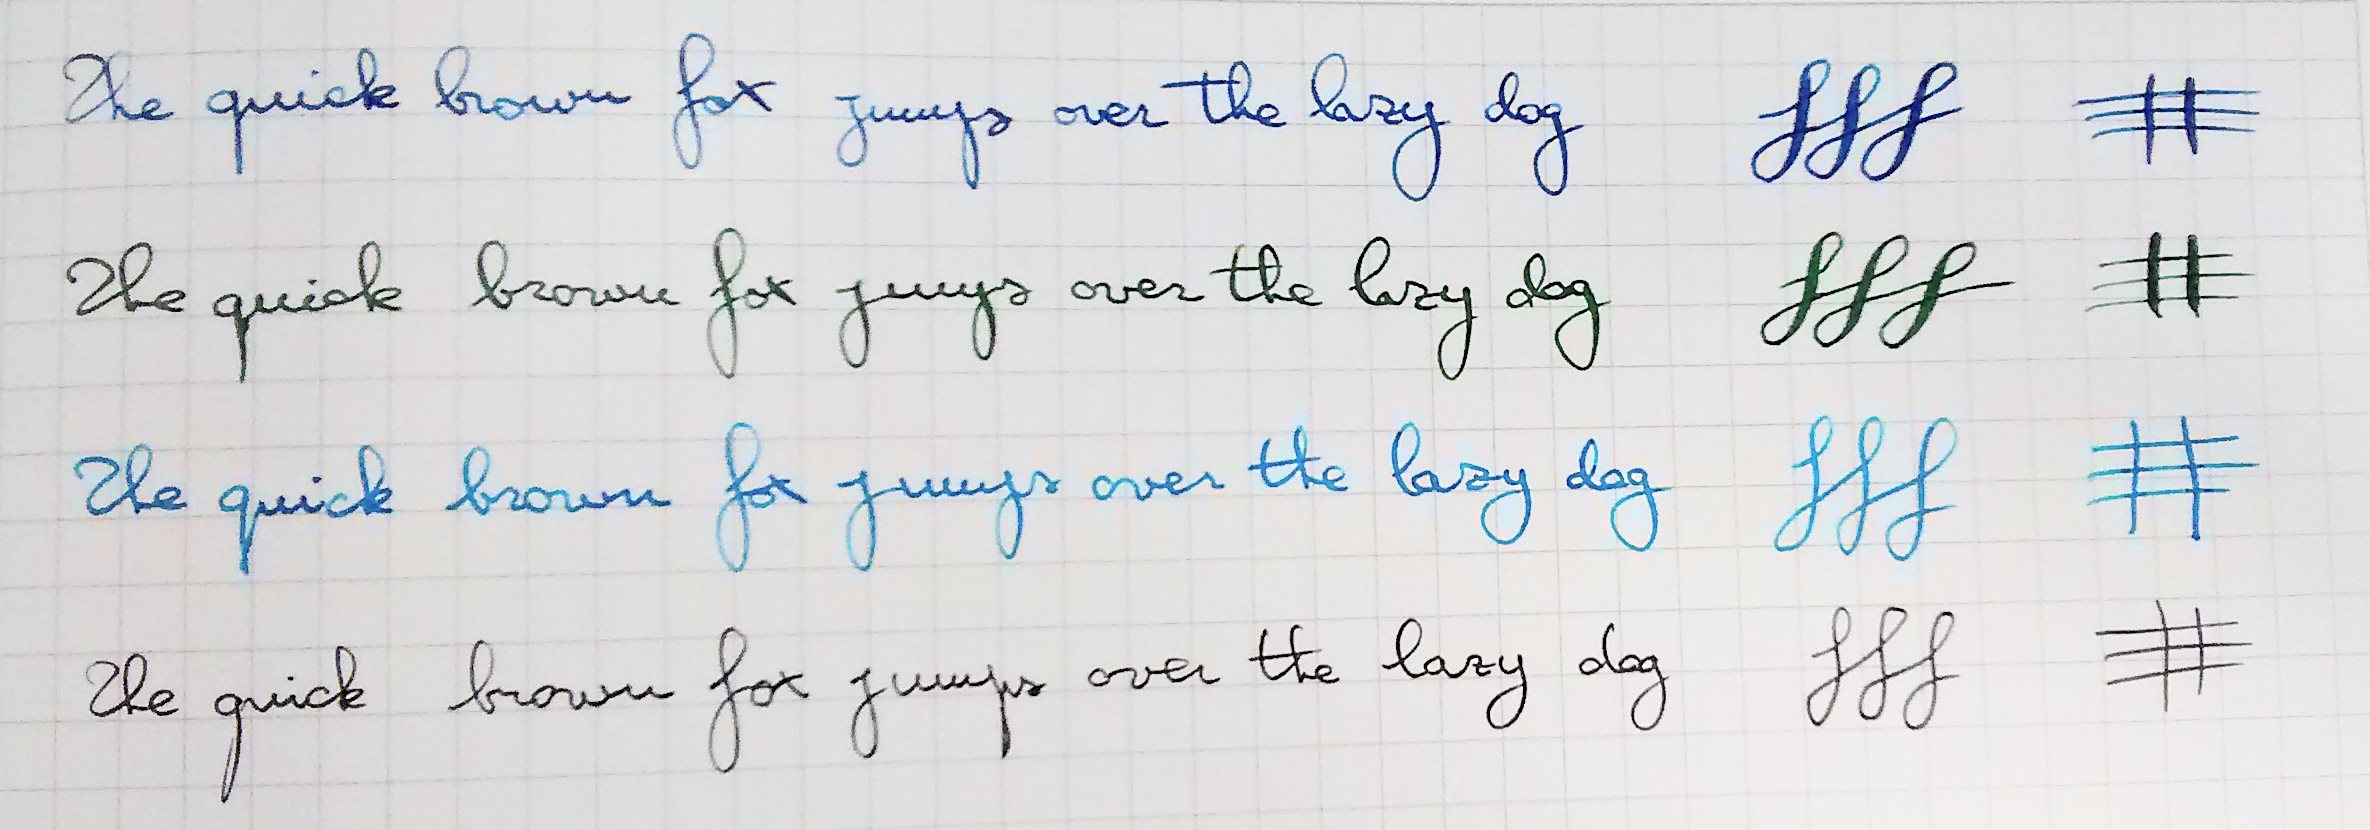 The quick brown fox jumps over the lazy dog fff #
The quick brown fox jumps over the lazy dog fff #
The quick brown fox jumps over the lazy dog fff #
The quick brown fox jumps over the lazy dog fff #